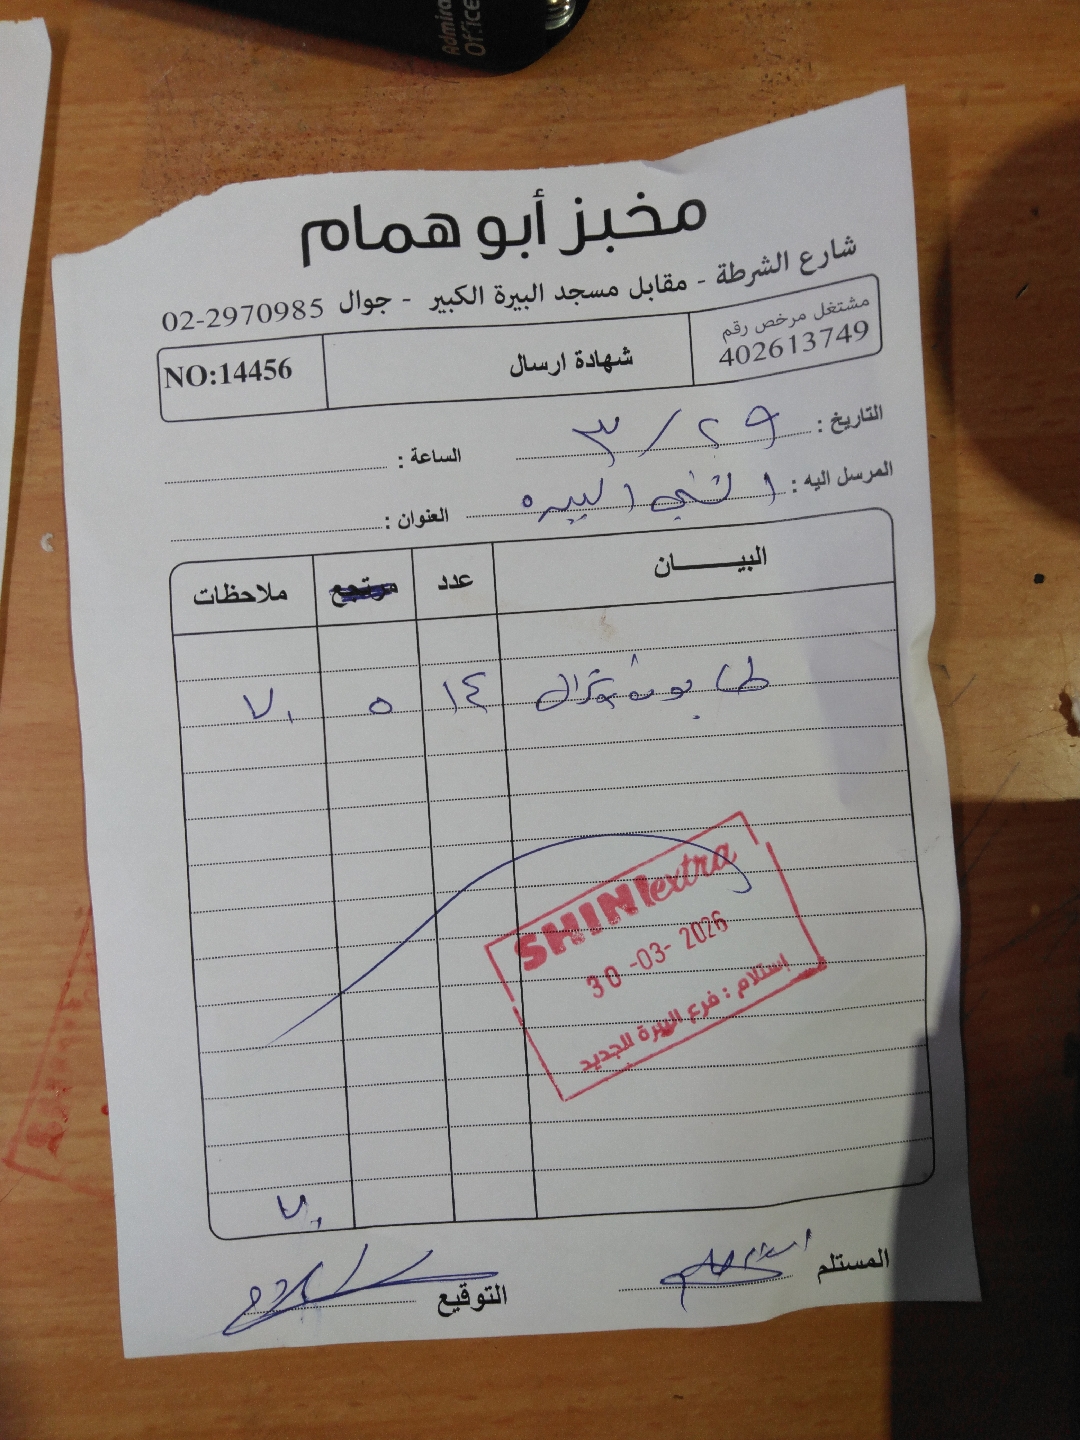 Admiral
Office
مخبز أبو همام
شارع الشرطة - مقابل مسجد البيرة الكبير - جوال 02-2970985
مشتغل مرخص رقم
402613749
شهادة ارسال
NO:14456
التاريخ : ٢٩ / ٣
الساعة :
المرسل اليه : الشني البيره
العنوان :
البيـــــــان عدد مرتجع ملاحظات
١٤ ٥ ٧٠
SHINI extra
30 -03- 2026
إستلام : فرع البيرة الجديد
٧٠
المستلم
التوقيع